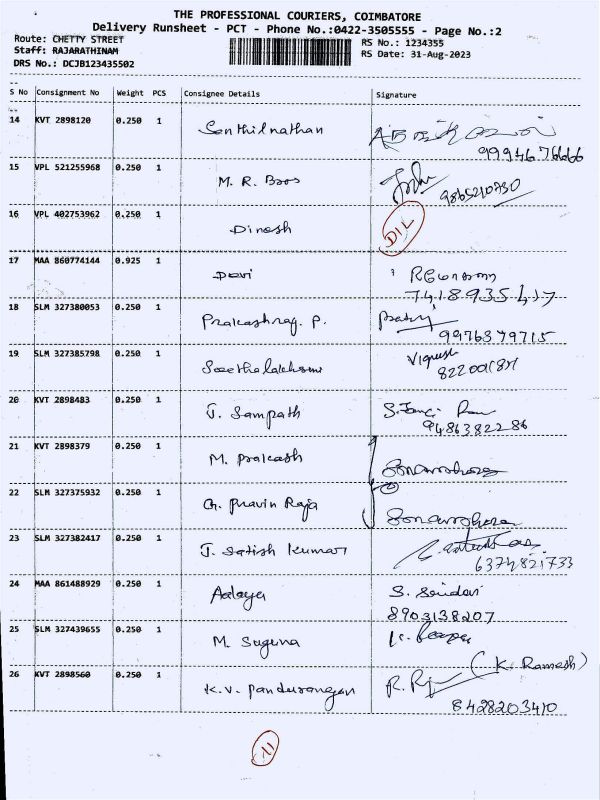 THE PROFESSIONAL COURIERS, COIMBATORE
Delivery Runsheet - PCT - Phone No.:0422-3505555 - Page No.:2
Route: CHETTY STREET RS No.: 1234355
Staff: RAJARATHINAM RS Date: 31-Aug-2023
DRS No.: DCJB123435502
S No Consignment No Weight PCS Consignee Details Signature
14 KVT 2898120 0.250 1 Senthilnathan
9994676666
15 VPL 521255968 0.250 1 M. R. Bros
9865210730
16 VPL 402753962 0.250 1 Dinesh DIL
17 MAA 860774144 0.925 1 Devi
7418935417
18 SLM 327380053 0.250 1 Prakashraj. P.
9976379715
19 SLM 327385798 0.250 1 Seethalakshmi Vignesh
20 KVT 2898483 0.250 1 J. Sampath
9486382286
21 KVT 2898379 0.250 1 M. Prakash
22 SLM 327375932 0.250 1 G. Pravin Raja
23 SLM 327382417 0.250 1 J. Satish Kumar
6374821733
24 MAA 861488929 0.250 1 Aalaya S. Sridevi
8903138207
25 SLM 327439655 0.250 1 M. Suguna
26 KVT 2898560 0.250 1 K.V. Pandurangan (K. Ramesh)
8428203410
11